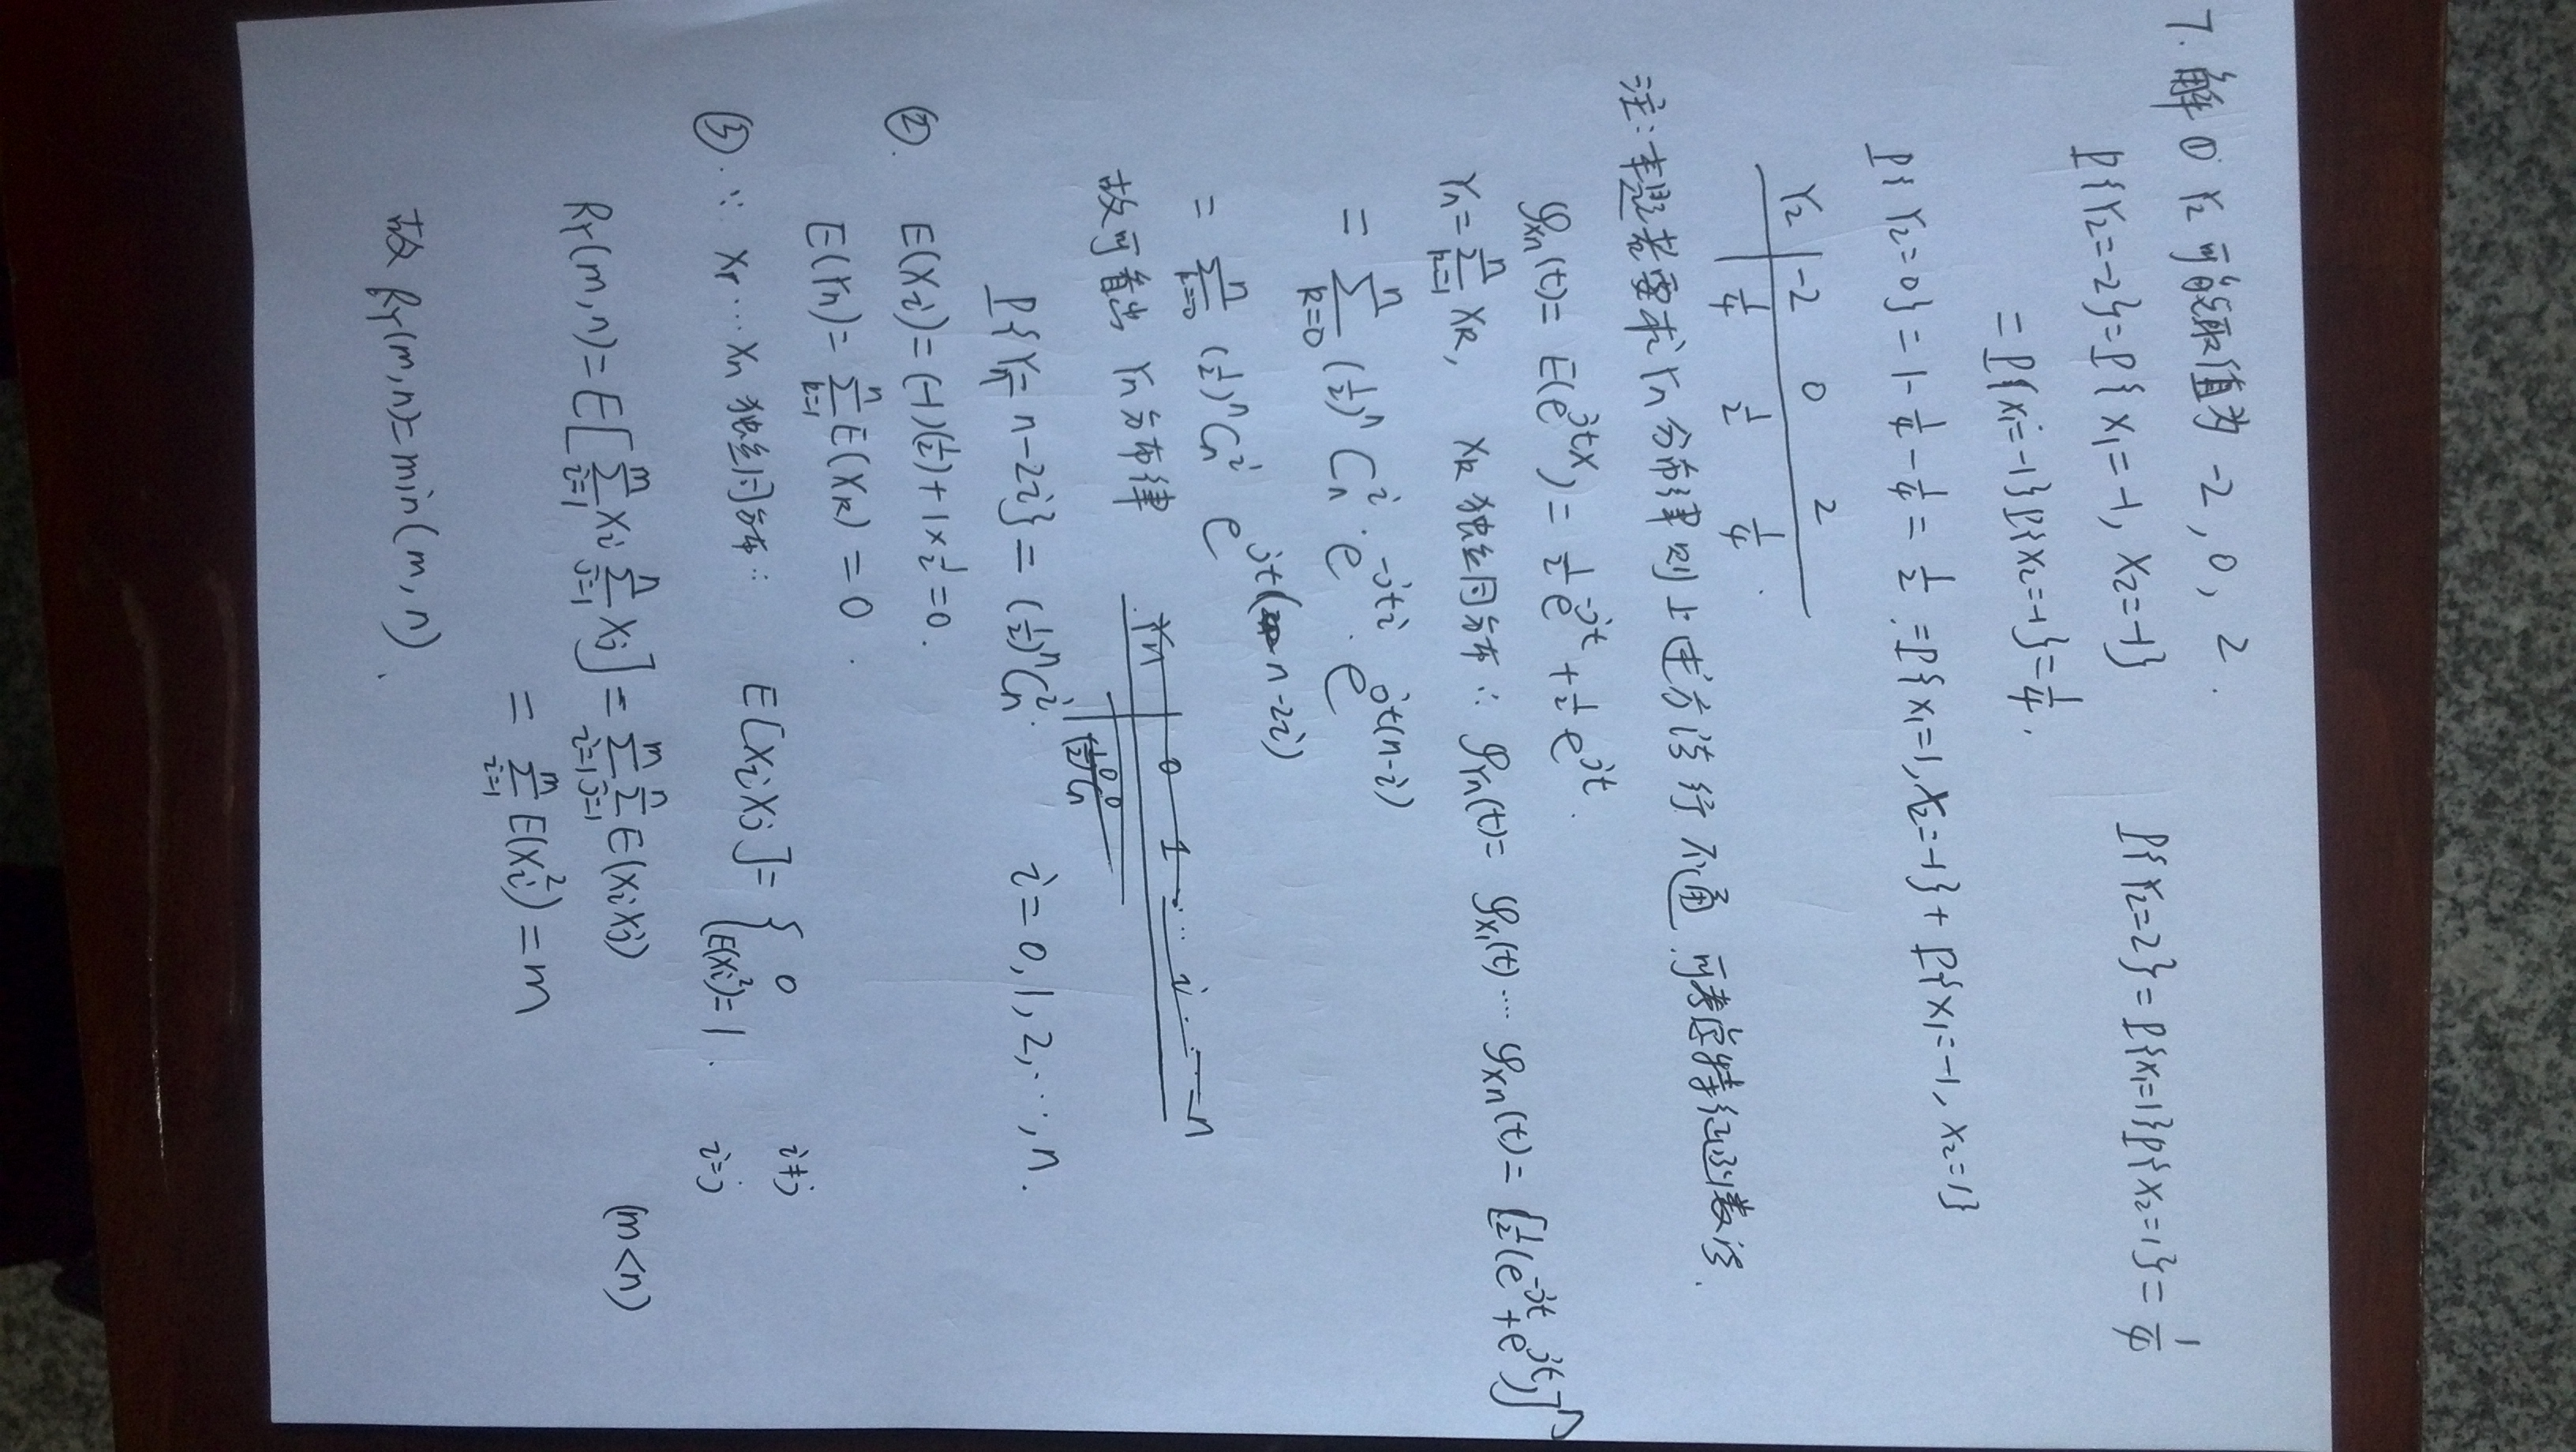 7. 解 ① Y₂ 可能取值为 -2, 0, 2.
P{Y₂=-2}=P{X₁=-1, X₂=-1} P{Y₂=2}=P{X₁=1}P{X₂=1}=1/4
=P{X₁=-1}P{X₂=-1}=1/4.
P{Y₂=0}=1-1/4-1/4=1/2.=P{X₁=1, X₂=-1}+P{X₁=-1, X₂=1}
Y₂ | -2 0 2
| 1/4 1/2 1/4.
注: 本题若要求 Yn 分布律则上述方法行不通,可考虑特征函数法.
φ_Xn(t)= E(e^{jtX})= 1/2 e^{-jt} + 1/2 e^{jt}.
Yn=∑_{k=1}^{n} X_k, X_k 独立同分布 ∴ φ_Yn(t)= φ_X₁(t) ⋯ φ_Xn(t)= [1/2(e^{-jt}+e^{jt})]^n
= ∑_{k=0}^{n} (1/2)^n C_n^i · e^{-jti} · e^{jt(n-i)}
= ∑_{k=0}^{n} (1/2)^n C_n^i e^{jt(n-2i)}
故可看出 Yn 分布律
P{Yn= n-2i}= (1/2)^n C_n^i. i=0,1,2,⋯,n.
②. E(Xi)=(-1)(1/2)+1×1/2=0.
E(Yn)= ∑_{k=1}^{n} E(X_k) = 0.
③. ∵ X₁⋯Xn 独立同分布 ∴ E[XiXj]= { 0 i≠j
E(Xi²)=1. i=j
R_Y(m,n)=E[∑_{i=1}^{m} Xi ∑_{j=1}^{n} Xj]=∑_{i=1}^{m} ∑_{j=1}^{n} E(XiXj) (m<n)
= ∑_{i=1}^{m} E(Xi²)=m
故 R_Y(m,n)=min(m, n).